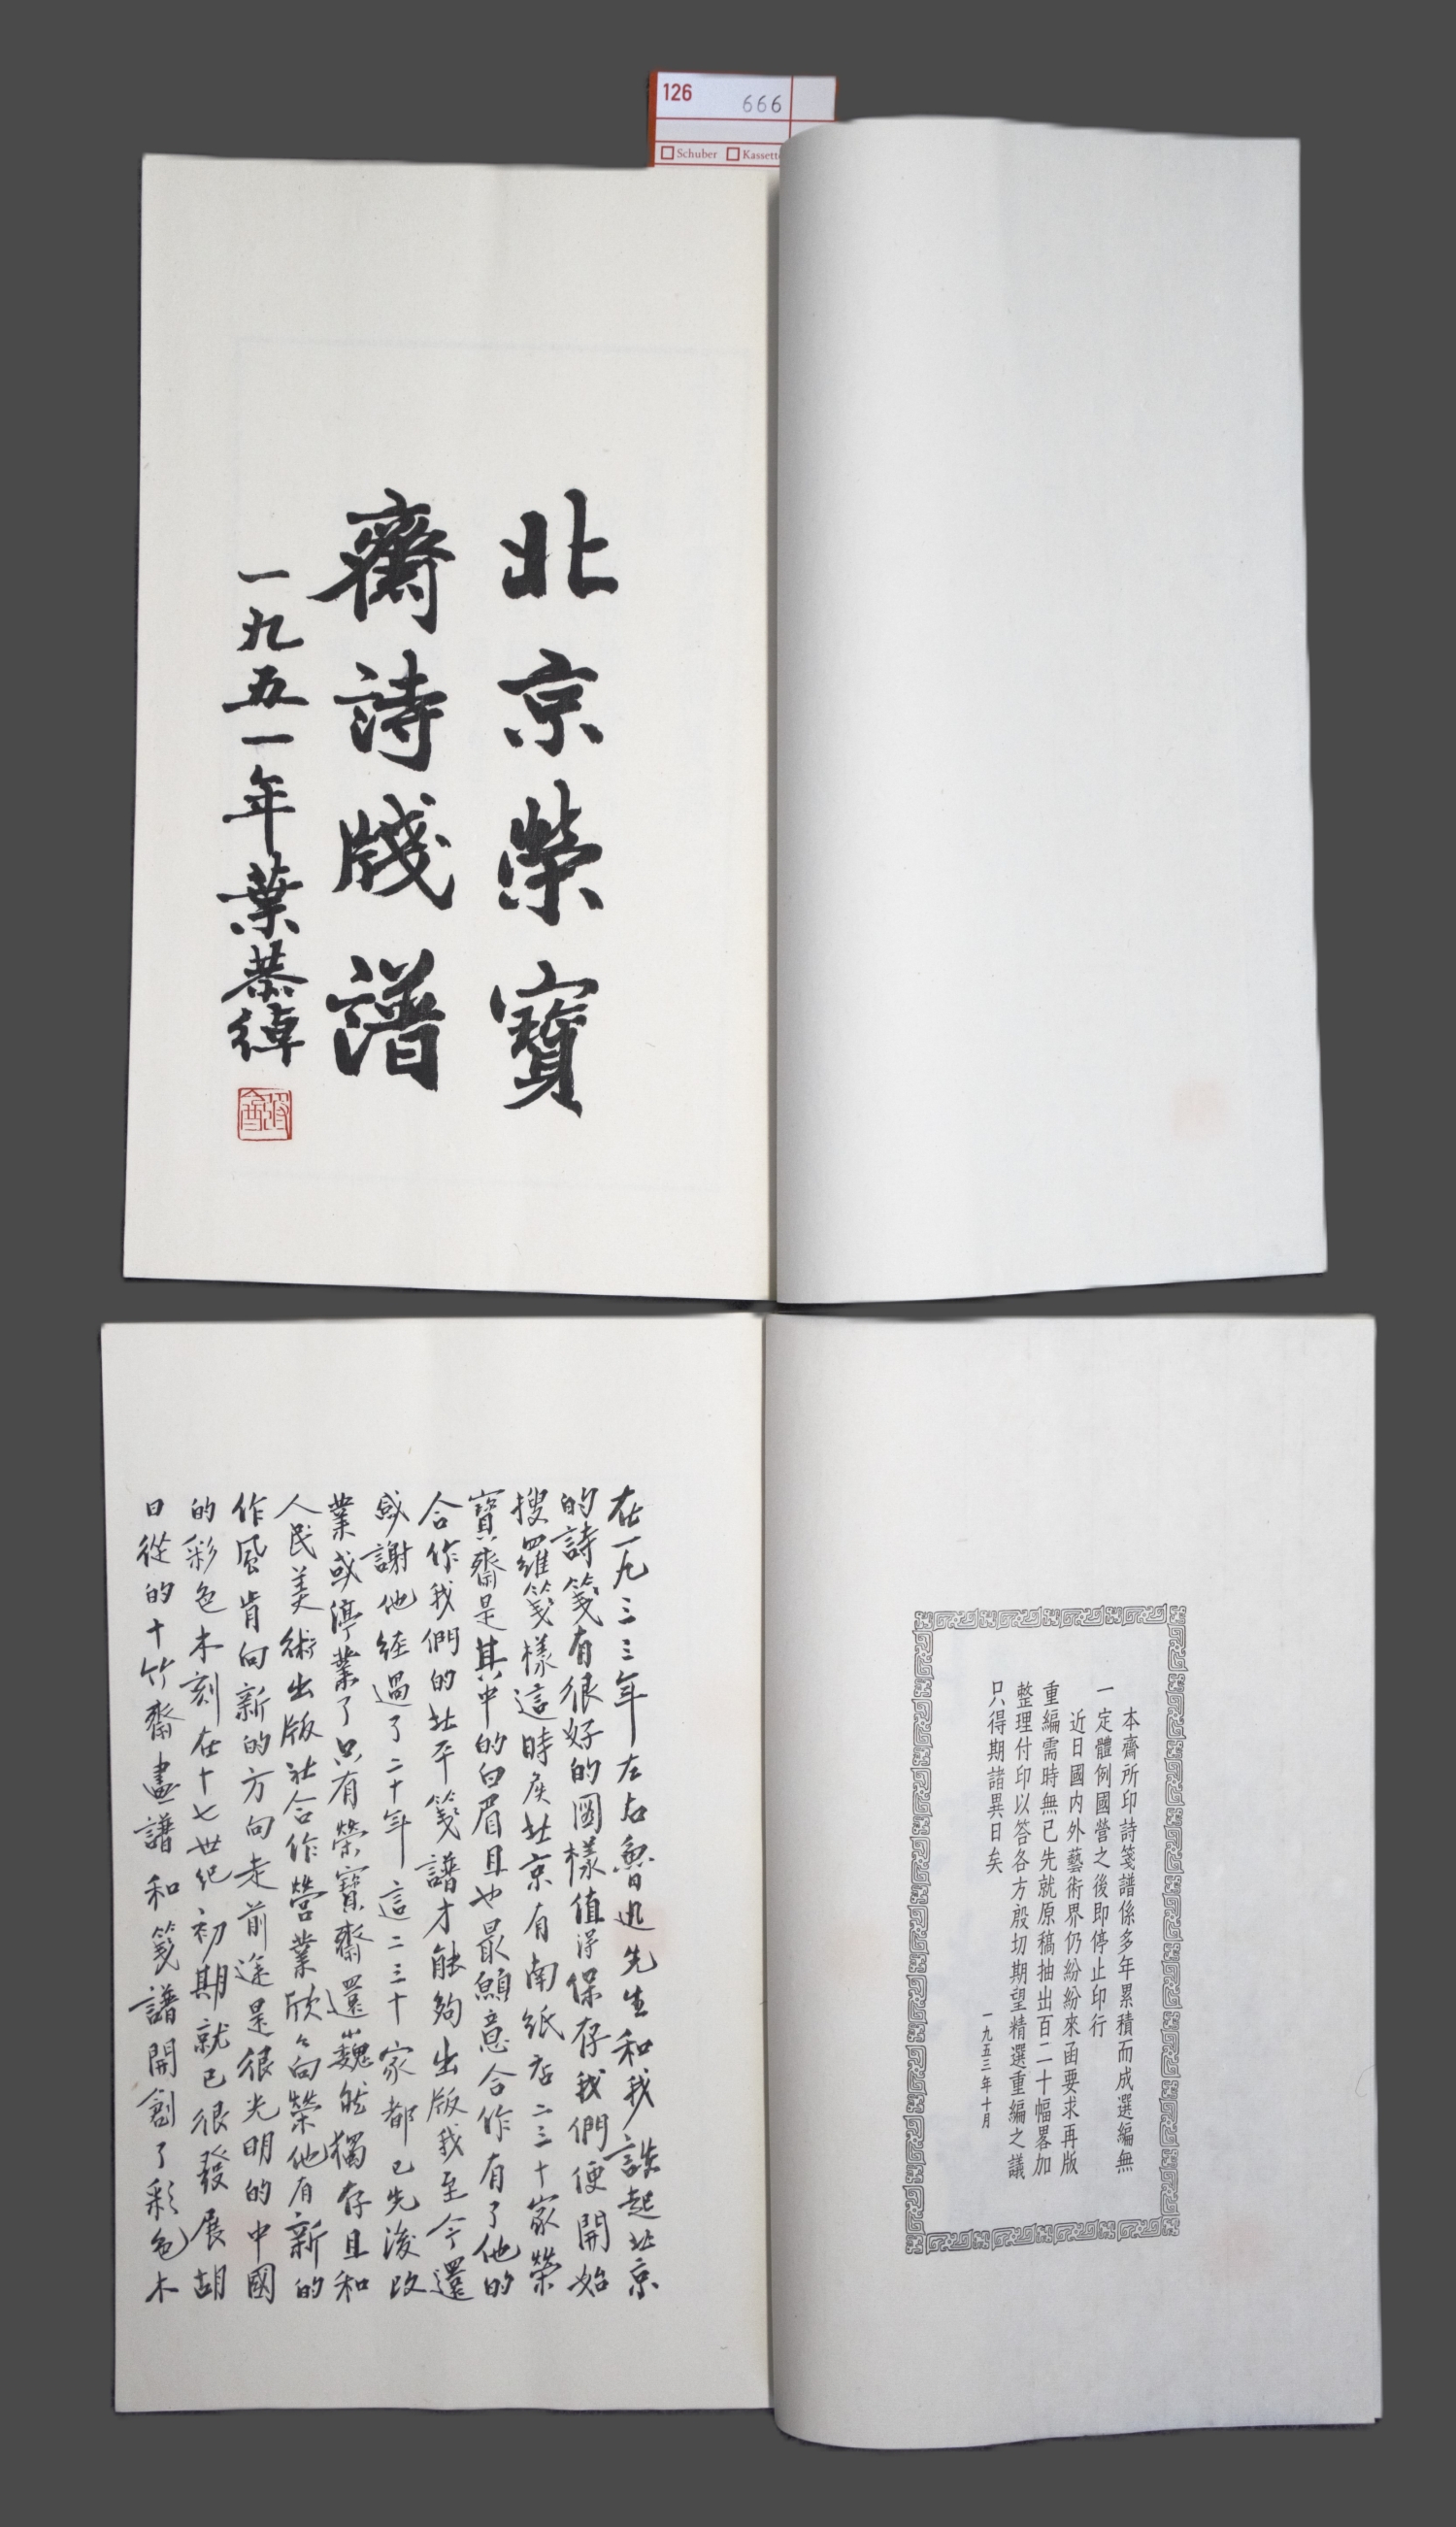 126
666
Schuber
北京榮寶
齋詩牋譜
一九五一年葉恭綽
本齋所印詩箋譜係多年累積而成選編無
一定體例國營之後即停止印行
近日國内外藝術界仍紛紛來函要求再版
重編需時無已先就原稿抽出百二十幅畧加
整理付印以答各方殷切期望精選重編之議
只得期諸異日矣
一九五三年十月
在一九三三年左右魯迅先生和我談起北京
的詩箋有很好的圖樣值得保存我們便開始
搜羅箋樣這時候北京有南紙店二三十家榮
寶齋是其中的白眉且也最願意合作有了他的
合作我們的北平箋譜才能夠出版我至今還
感謝他經過了二十年這二三十家都已先後改
業或停業了只有榮寶齋還巍然獨存且和
人民美術出版社合作營業欣欣向榮他有新的
作風肯向新的方向走前途是很光明的中國
的彩色木刻在十七世紀初期就已很發展胡
曰從的十竹齋畫譜和箋譜開創了彩色木